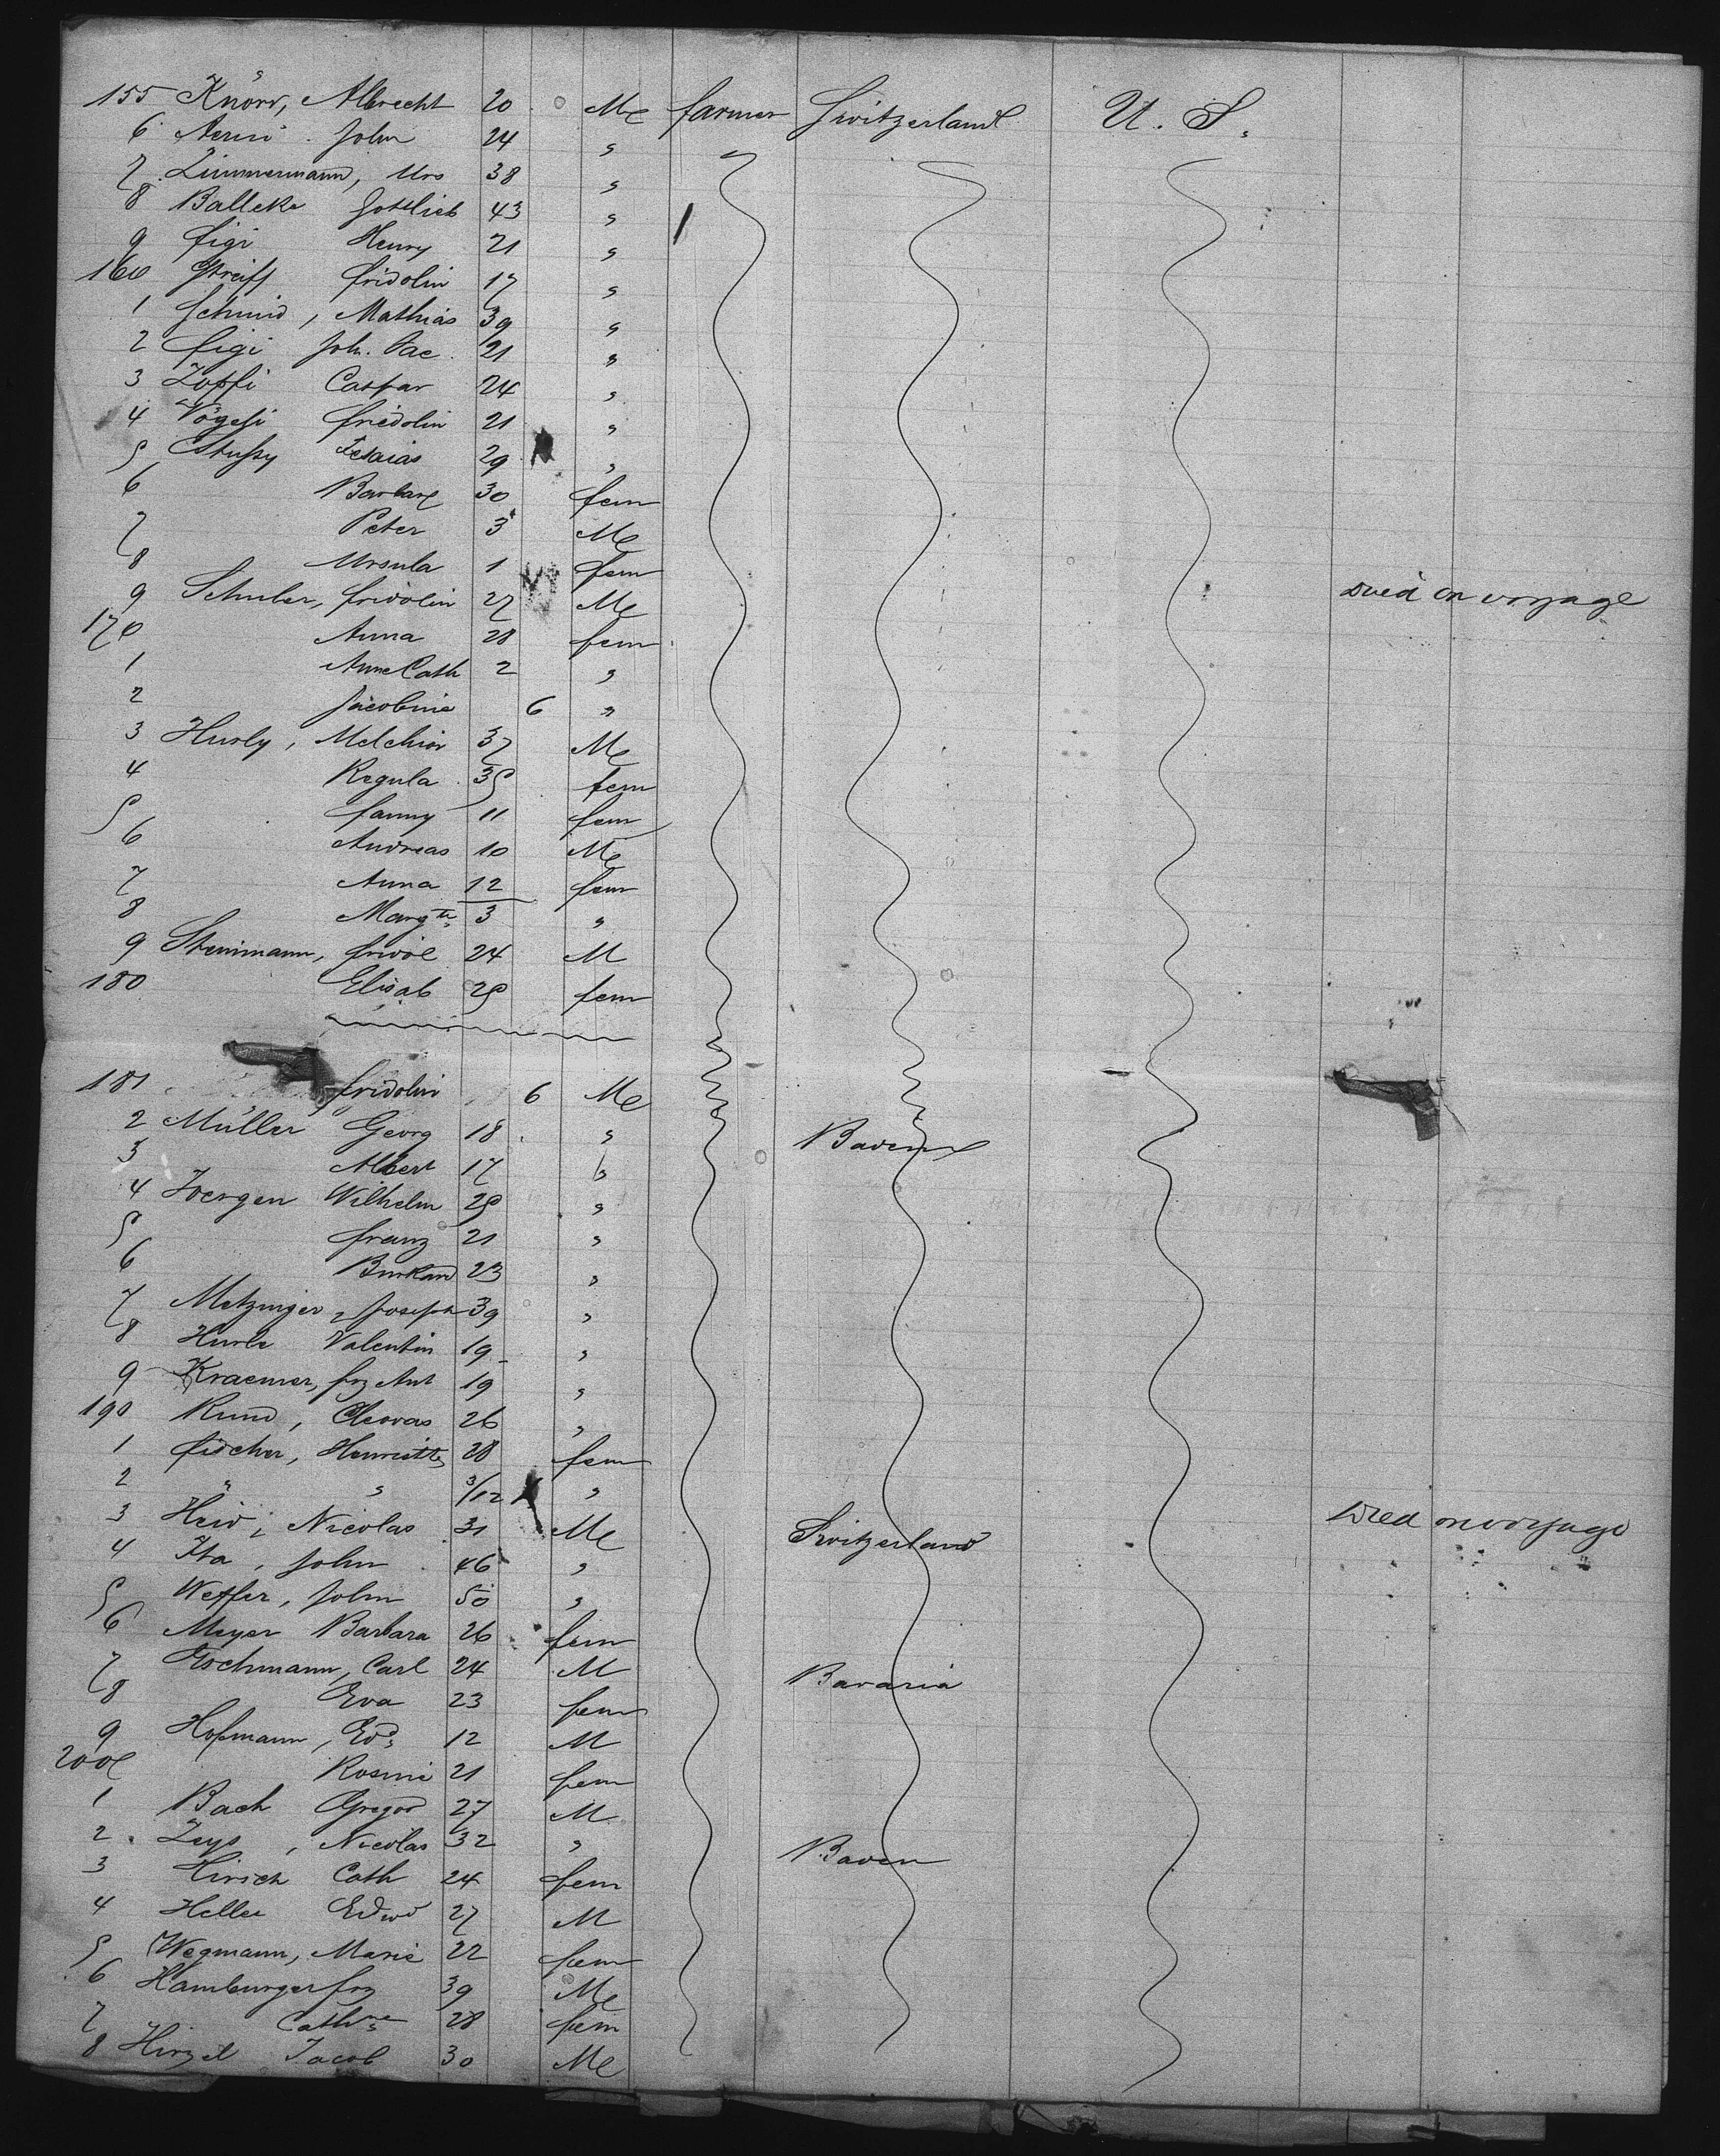 155 Knörr, Albrecht 20 Me farmer Switzerland U. S.
6 Aerni John 24 "
7 Zimmermann, Urs 38 "
8 Balleke Gottlieb 43 "
9 figi Henry 21 "
160 Streiff fridolin 17 "
1 Schmid, Mathias 39 "
2 figi Joh. Jac. 21 "
3 Zopfi Caspar 24 "
4 Vögeli fridolin 21 "
5 Stussy Jesaias 29 "
6 Barbara 30 fem
7 Peter 3 Me
8 Ursula 1 fem died on voyage
9 Schuler, fridolin 27 Me
170 Anna 28 fem
1 Anna Cath 2 "
2 Jacobine 6 "
3 Hurly, Melchior 37 Me
4 Regula 35 fem
5 fanny 11 fem
6 Andreas 10 Me
7 Anna 12 fem
8 Margth 3 "
9 Steinmann, fridol 24 M
180 Elisab 25 fem
181 fridolin 6 Me
2 Müller Georg 18 " Baden
3 Albert 17 "
4 Joergen Wilhelm 25 "
5 franz 21 "
6 Burkard 23 "
7 Metzinger, Joseph 39 "
8 Hurle Valentin 19 "
9 Kraemer, frz Ant 19 "
190 Rund, Cleovas 26 "
1 fischer, Henriette 28 fem
2 " " 3/12 " died on voyage
3 Heid, Nicolas 31 Me Switzerland
4 Ita, John 46 "
5 John 50 "
6 Meyer Barbara 26 fem
7 Carl 24 M Bavaria
8 Eva 23 fem
9 Hofmann, Ed. 12 M
200 Rosine 21 fem
1 Bach Gregor 27 M
2 Zeys, Nicolas 32 " Baden
3 Hirsch Cath 24 fem
4 Heller Edwd 27 M
5 Wegmann, Marie 22 fem
6 Hamburger frz 39 Me
7 Cathne 28 fem
8 Hirzel Jacob 30 Me